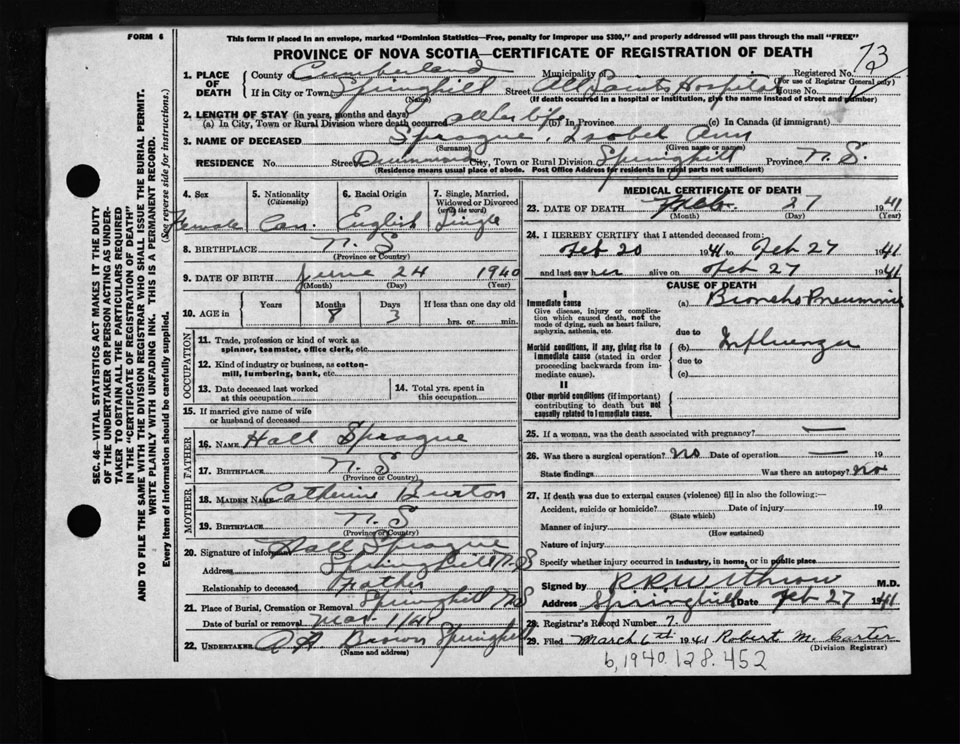 FORM 6
This form if placed in an envelope, marked "Dominion Statistics—Free, penalty for improper use $300," and properly addressed will pass through the mail "FREE"
PROVINCE OF NOVA SCOTIA—CERTIFICATE OF REGISTRATION OF DEATH
SEC. 46—VITAL STATISTICS ACT MAKES IT THE DUTY
OF THE UNDERTAKER OR PERSON ACTING AS UNDER-
TAKER TO OBTAIN ALL THE PARTICULARS REQUIRED
IN THE "CERTIFICATE OF REGISTRATION OF DEATH"
AND TO FILE THE SAME WITH THE DIVISION REGISTRAR WHO SHALL ISSUE THE BURIAL PERMIT.
WRITE PLAINLY WITH UNFADING INK. THIS IS A PERMANENT RECORD.
Every item of information should be carefully supplied. (See reverse side for instructions.)
1. PLACE OF DEATH County of Cumberland Municipality Registered No. 73
(For use of Registrar General only)
If in City or Town Springhill Street All Saints Hospital House No.
(Name) (If death occurred in a hospital or institution, give the name instead of street and number)
2. LENGTH OF STAY (in years, months and days)
(a) In City, Town or Rural Division where death occurred all her life (b) in Province (c) in Canada (if immigrant)
3. NAME OF DECEASED Sprague Isobel Ann
(Surname) (Given name or names)
RESIDENCE No. Street Drummond City, Town or Rural Division Springhill Province N. S.
(Residence means usual place of abode. Post Office Address for residents in rural parts not sufficient)
4. Sex 5. Nationality (Citizenship) 6. Racial Origin 7. Single, Married, Widowed or Divorced (write the word)
Female Can. English Single
8. BIRTHPLACE N. S
(Province or Country)
9. DATE OF BIRTH June 24 1940
(Month) (Day) (Year)
10. AGE in Years Months Days If less than one day old
8 3 hrs. or min.
OCCUPATION
11. Trade, profession or kind of work as
spinner, teamster, office clerk, etc.
12. Kind of industry or business, as cotton-
mill, lumbering, bank, etc.
13. Date deceased last worked
at this occupation
14. Total yrs. spent in
this occupation
15. If married give name of wife
or husband of deceased
FATHER
16. NAME Hall Sprague
17. BIRTHPLACE N. S
MOTHER
18. MAIDEN NAME Catherine Burton
19. BIRTHPLACE N. S
(Province or Country)
20. Signature of informant Hall Sprague
Address Springhill N. S
Relationship to deceased Father
21. Place of Burial, Cremation or Removal Springhill N S
Date of burial or removal Mar 1/41
22. UNDERTAKER A A Brown Springhill
(Name and address)
MEDICAL CERTIFICATE OF DEATH
23. DATE OF DEATH Feb. 27 1941
(Month) (Day) (Year)
24. I HEREBY CERTIFY that I attended deceased from:
Feb 20 1941 to Feb 27 1941
and last saw her alive on Feb 27 1941
CAUSE OF DEATH
I
Immediate cause (a) Broncho Pneumonia
Give disease, injury or complica-
tion which caused death, not the
mode of dying, such as heart failure,
asphyxia, asthenia, etc.
due to
Morbid conditions, if any, giving rise to (b) Influenza
immediate cause (stated in order due to
proceeding backwards from im- (c)
mediate cause).
II
Other morbid conditions (if important)
contributing to death but not
causally related to immediate cause.
25. If a woman, was the death associated with pregnancy? —
26. Was there a surgical operation? No Date of operation — 19
State findings Was there an autopsy? No
27. If death was due to external causes (violence) fill in also the following:—
Accident, suicide or homicide? Date of injury 19
(State which)
Manner of injury
(How sustained)
Nature of injury
Specify whether injury occurred in industry, in home, or in public place
Signed by R R Withrow M.D.
Address Springhill Date Feb 27 1941
28. Registrar's Record Number 7.
29. Filed March 6th 1941 Robert M. Carter
(Division Registrar)
b, 1940. 128. 452